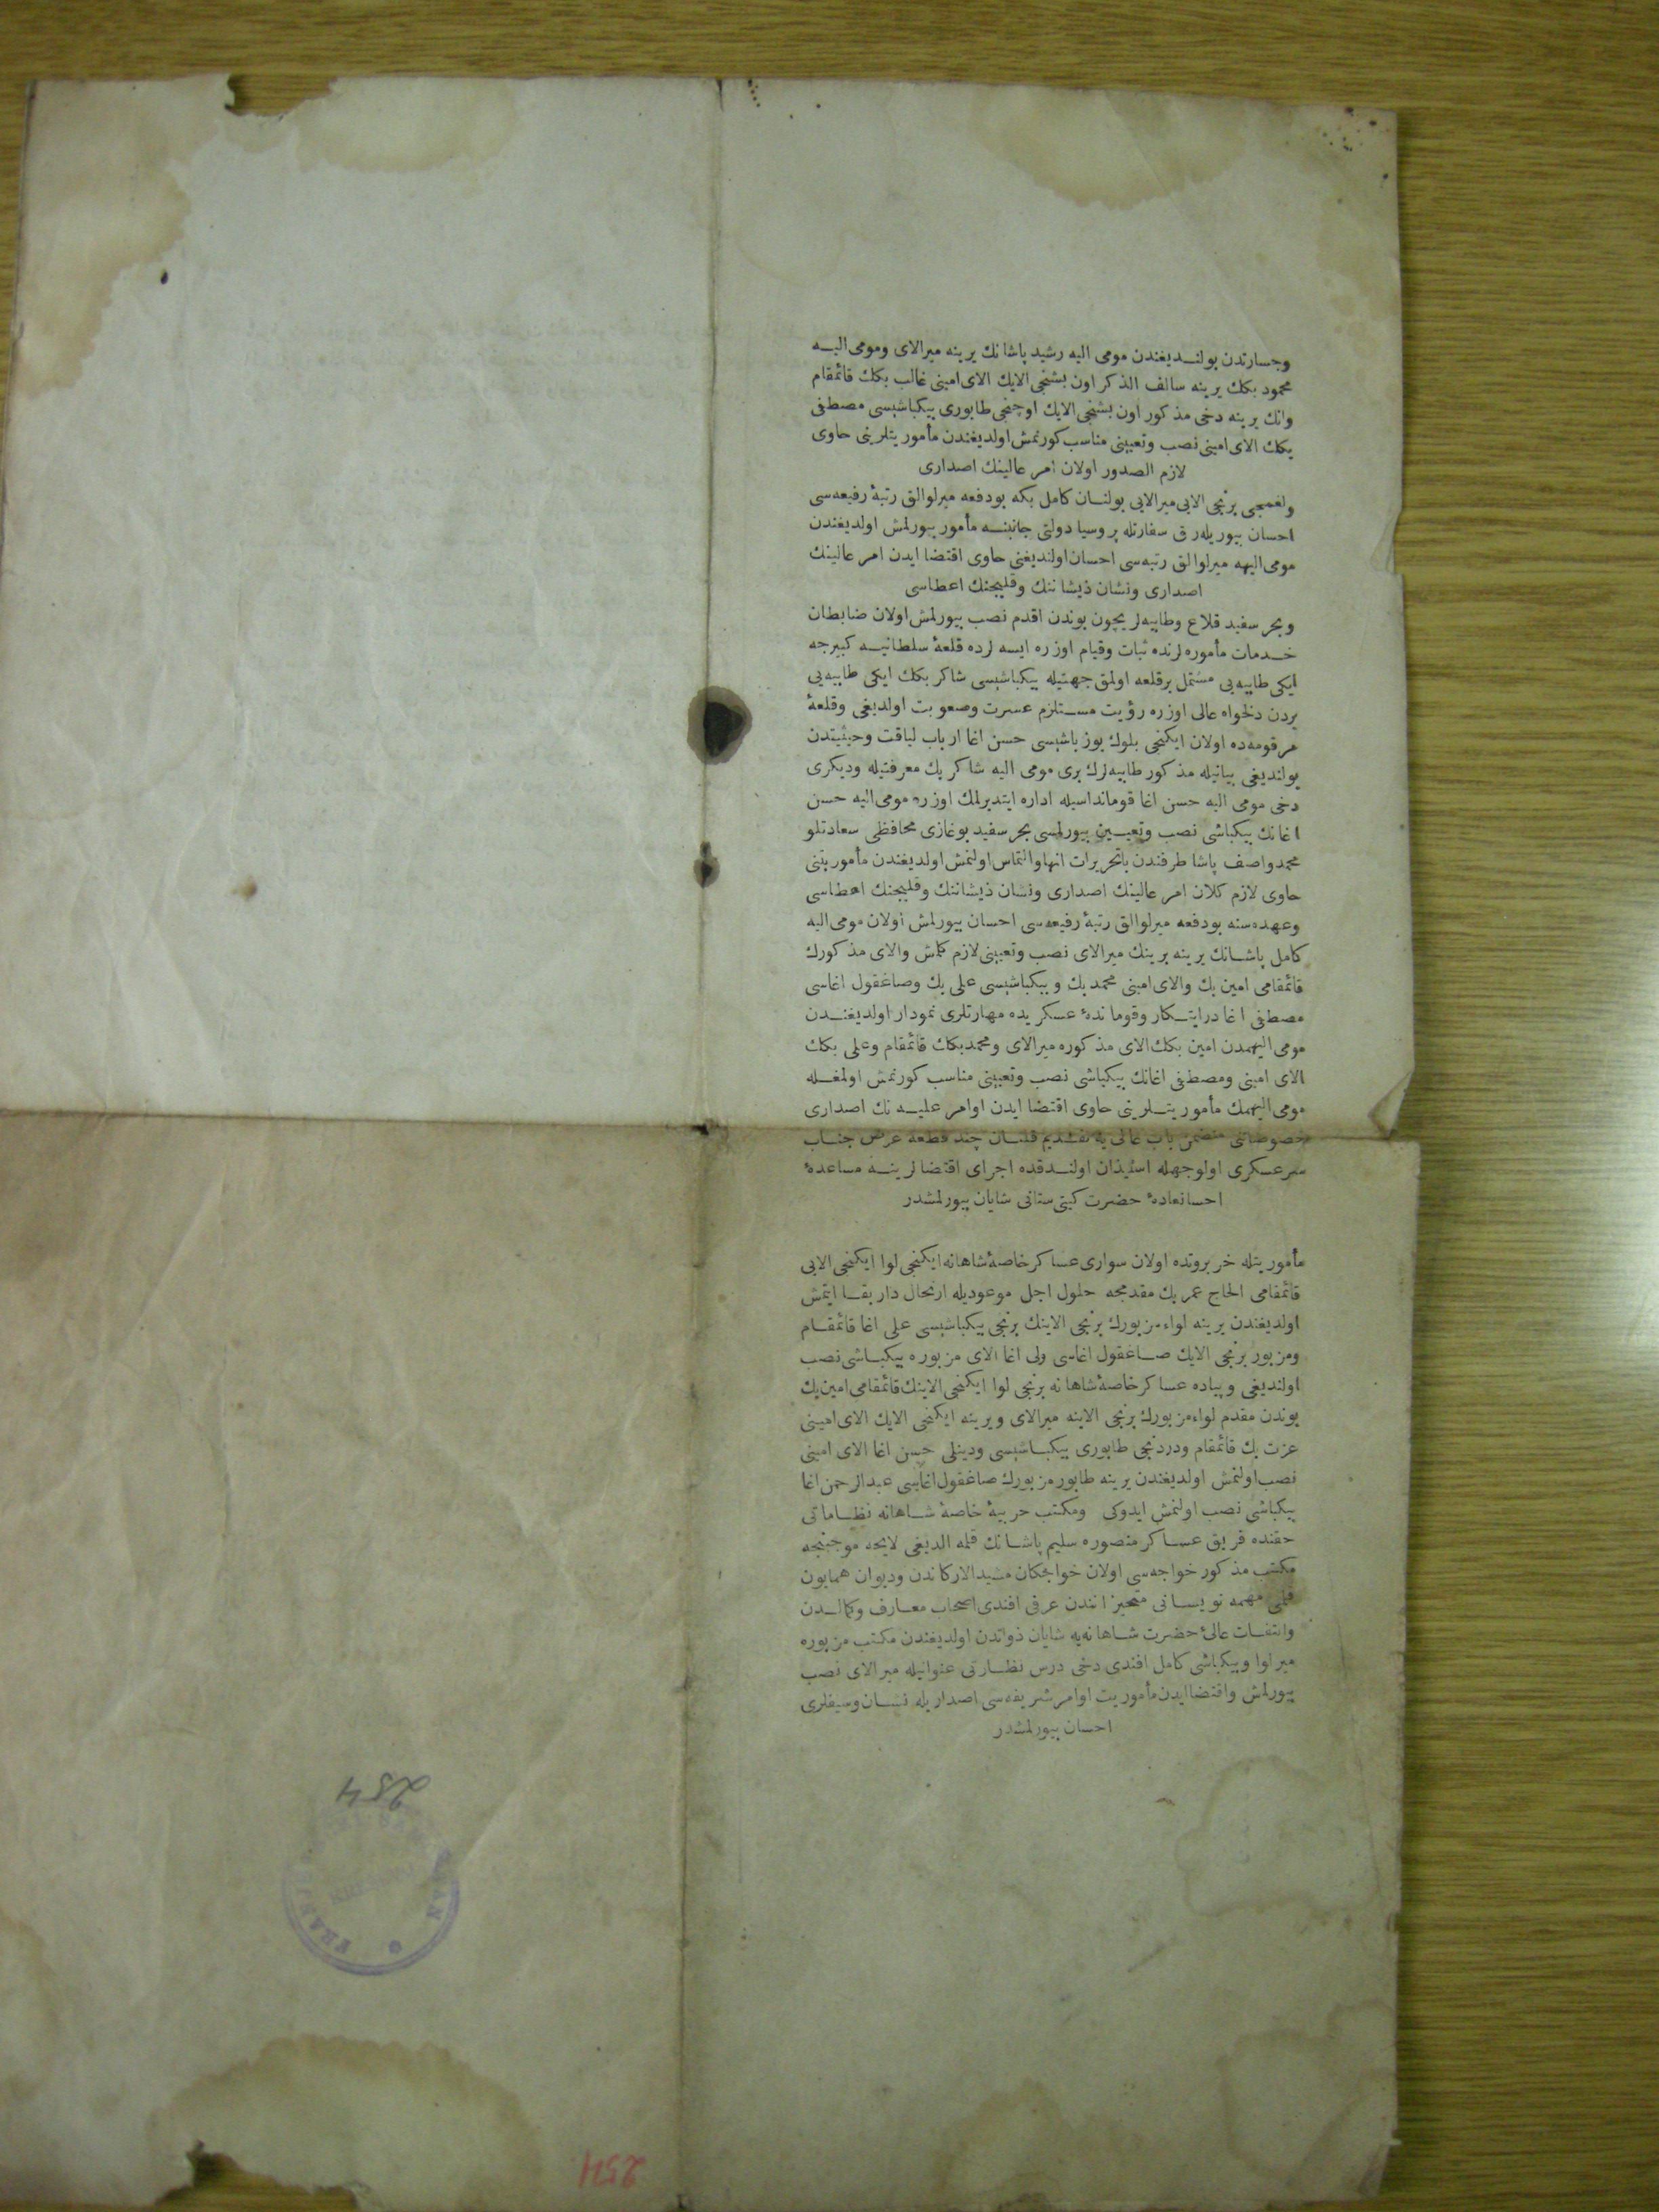 وجسارتدن بولنـديغندن مومى اليه رشيد پاشانك يرينه ميرالاى ومومى اليـه
محمود بكك يرينه سالف الذكر اون بشنجى الايك الاى امينى غالب بكك قائمقام
وانك يرينه دخى مذكور اون بشنجى الايك اوچنجى طابورى بيكباشيسى مصطفى
بكك الاى امينى نصب وتعيينى مناسب كورنمش اولديغندن مأموريتلرينى حاوى
لازم الصدور اولان امر عالينك اصدارى
ولغمجى برنجى الايى ميرالايى بولنـان كامل بكه بودفعه ميرلوالق رتبۀ رفيعه‌سى
احسان بيوريله‌رق سفارتله پروسيا دولتى جانبنـه مأمور بيورلمش اولديغندن
مومى اليهه ميرلوالق رتبه‌سى احسان اولنديغنى حاوى اقتضا ايدن امر عالينك
اصدارى ونشان ذيشاننك وقليجنك اعطاسى
وبحر سفيد قلاع وطابيه‌لريچون بوندن اقدم نصب بيورلمش اولان ضابطان
خـدمات مأموره‌لرنده ثبات وقيام اوزره ايسه‌لرده قلعۀ سلطانيـه كبيرجه
ايكى طابيه‌يى مشتمل برقلعه اولمق جهتيله بيكباشيسى شاكر بكك ايكى طابيه‌يى
بردن دلخواه عالى اوزره رؤيت مسـتلزم عسرت وصعوبت اولديغى وقلعۀ
مرقومه‌ده اولان ايكنجى بلوك يوزباشيسى حسن اغا ارباب لياقت وحيثيتدن
بولنديغى بيانيله مذكور طابيه‌لرك برى مومى اليه شاكر بك معرفتيله وديكرى
دخى مومى اليه حسن اغا قومانداسيله اداره ايتديرلمك اوزره مومى اليه حسن
اغانك بيكباشى نصب وتعيـين بيورلمسى بحر سفيد بوغازى محافظى سعادتلو
محمد واصف پاشا طرفندن باتحريرات انها والتماس اولنمش اولديغندن مأموريتنى
حاوى لازم كلان امر عالينك اصدارى ونشان ذيشاننك وقليجنك اعطاسى
وعهده‌سنه بودفعه ميرلوالق رتبۀ رفيعه‌سى احسان بيورلمش اولان مومى اليه
كامل پاشـانك يرينه برينك ميرالاى نصب وتعيينى لازم كلمش والاى مذكورك
قائمقامى امين بك والاى امينى محمد بك وبيكباشيسى على بك وصاغقول اغاسى
مصطفى اغا درايتـكار وقوماندۀ عسكريه‌ده مهارتلرى نمودار اولديغنـدن
مومى اليهمدن امين بكك الاى مذكوره ميرالاى ومحمد بكك قائمقام وعلى بكك
الاى امينى ومصطفى اغانك بيكباشى نصب وتعيينى مناسب كورنمش اولمغـله
مومى اليهمك مأموريتـلرينى حاوى اقتضا ايدن اوامر عليـه نك اصدارى
خصوصاتنى متضمن باب عالى‌يه تقـديم قلنـان چند قطعه عرض جنـاب
سرعسكرى اولوجهله استيذان اولنـدقده اجراى اقتضالرينـه مساعدۀ
احسانعادۀ حضرت كيتى ستانى شايان بيورلمشدر
مأموريتله خربرونده اولان سوارى عساكر خاصۀ شاهانه ايكنجى لوا ايكنجى الايى
قائمقامى الحاج عمر بك مقدمجه حلول اجل موعوديله ارتحال دار بقـا ايتمش
اولديغندن يرينه لواء مزبورك برنجى الاينك برنجى بيكباشيسى على اغا قائمقـام
ومزبور برنجى الايك صـاغقول اغاسى ولى اغا الاى مزبوره بيكبـاشى نصب
اولنديغى وپياده عساكر خاصۀ شاهانه برنجى لوا ايكنجى الاينك قائمقامى امين بك
بوندن مقدم لواء مزبورك برنجى الاينه ميرالاى ويرينه ايكنجى الايك الاى امينى
عزت بك قائمقام ودردنجى طابورى بيكبـاشيسى ودينلى حسن اغا الاى امينى
نصب اولنمش اولديغندن يرينه طابور مزبورك صاغقول اغاسى عبدالرحمن اغا
بيكباشى نصب اولنمش ايدوكى ومكتب حربيۀ خاصۀ شـاهانه نظـاماتى
حقنده فريق عسـاكر منصوره سليم پاشـانك قلمه الديغى لايحه موجبنجه
مكتب مذكور خواجه‌سى اولان خواجكان مشيدالاركاندن وديوان همايون
قلمى مهمه نويسـانى متحيزانندن عرفى افندى اصحاب معـارف وكمالـدن
والتفـات عالئ حضرت شـاهانه‌يه شايان ذواتدن اولديغندن مكتب مزبوره
ميرلوا وبيكباشى كامل افندى دخى درس نظـارتى عنوانيله ميرالاى نصب
بيورلمش واقتضا ايدن مأموريت اوامر شريفه‌سى اصداريله نشـان وسيفلرى
احسان بيورلمشدر
254
254